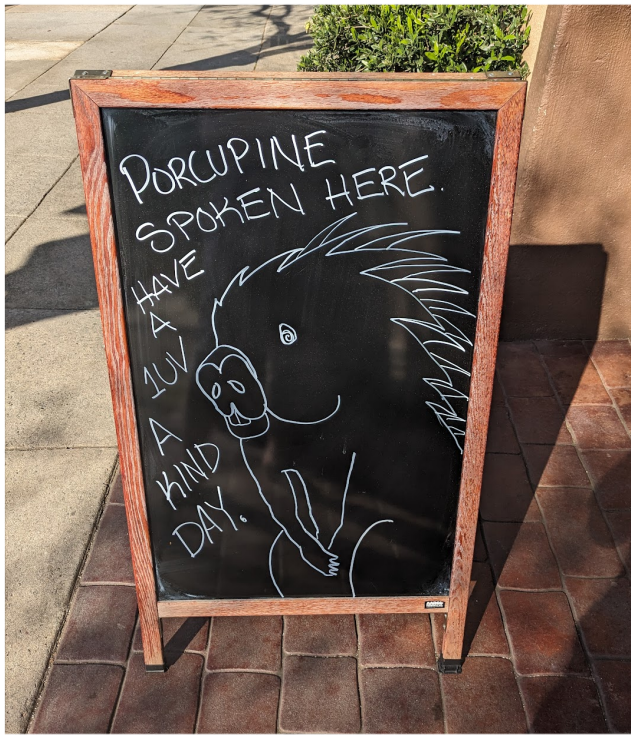 PORCUPINE
SPOKEN HERE.
HAVE
A
1UV
A
KIND
DAY.